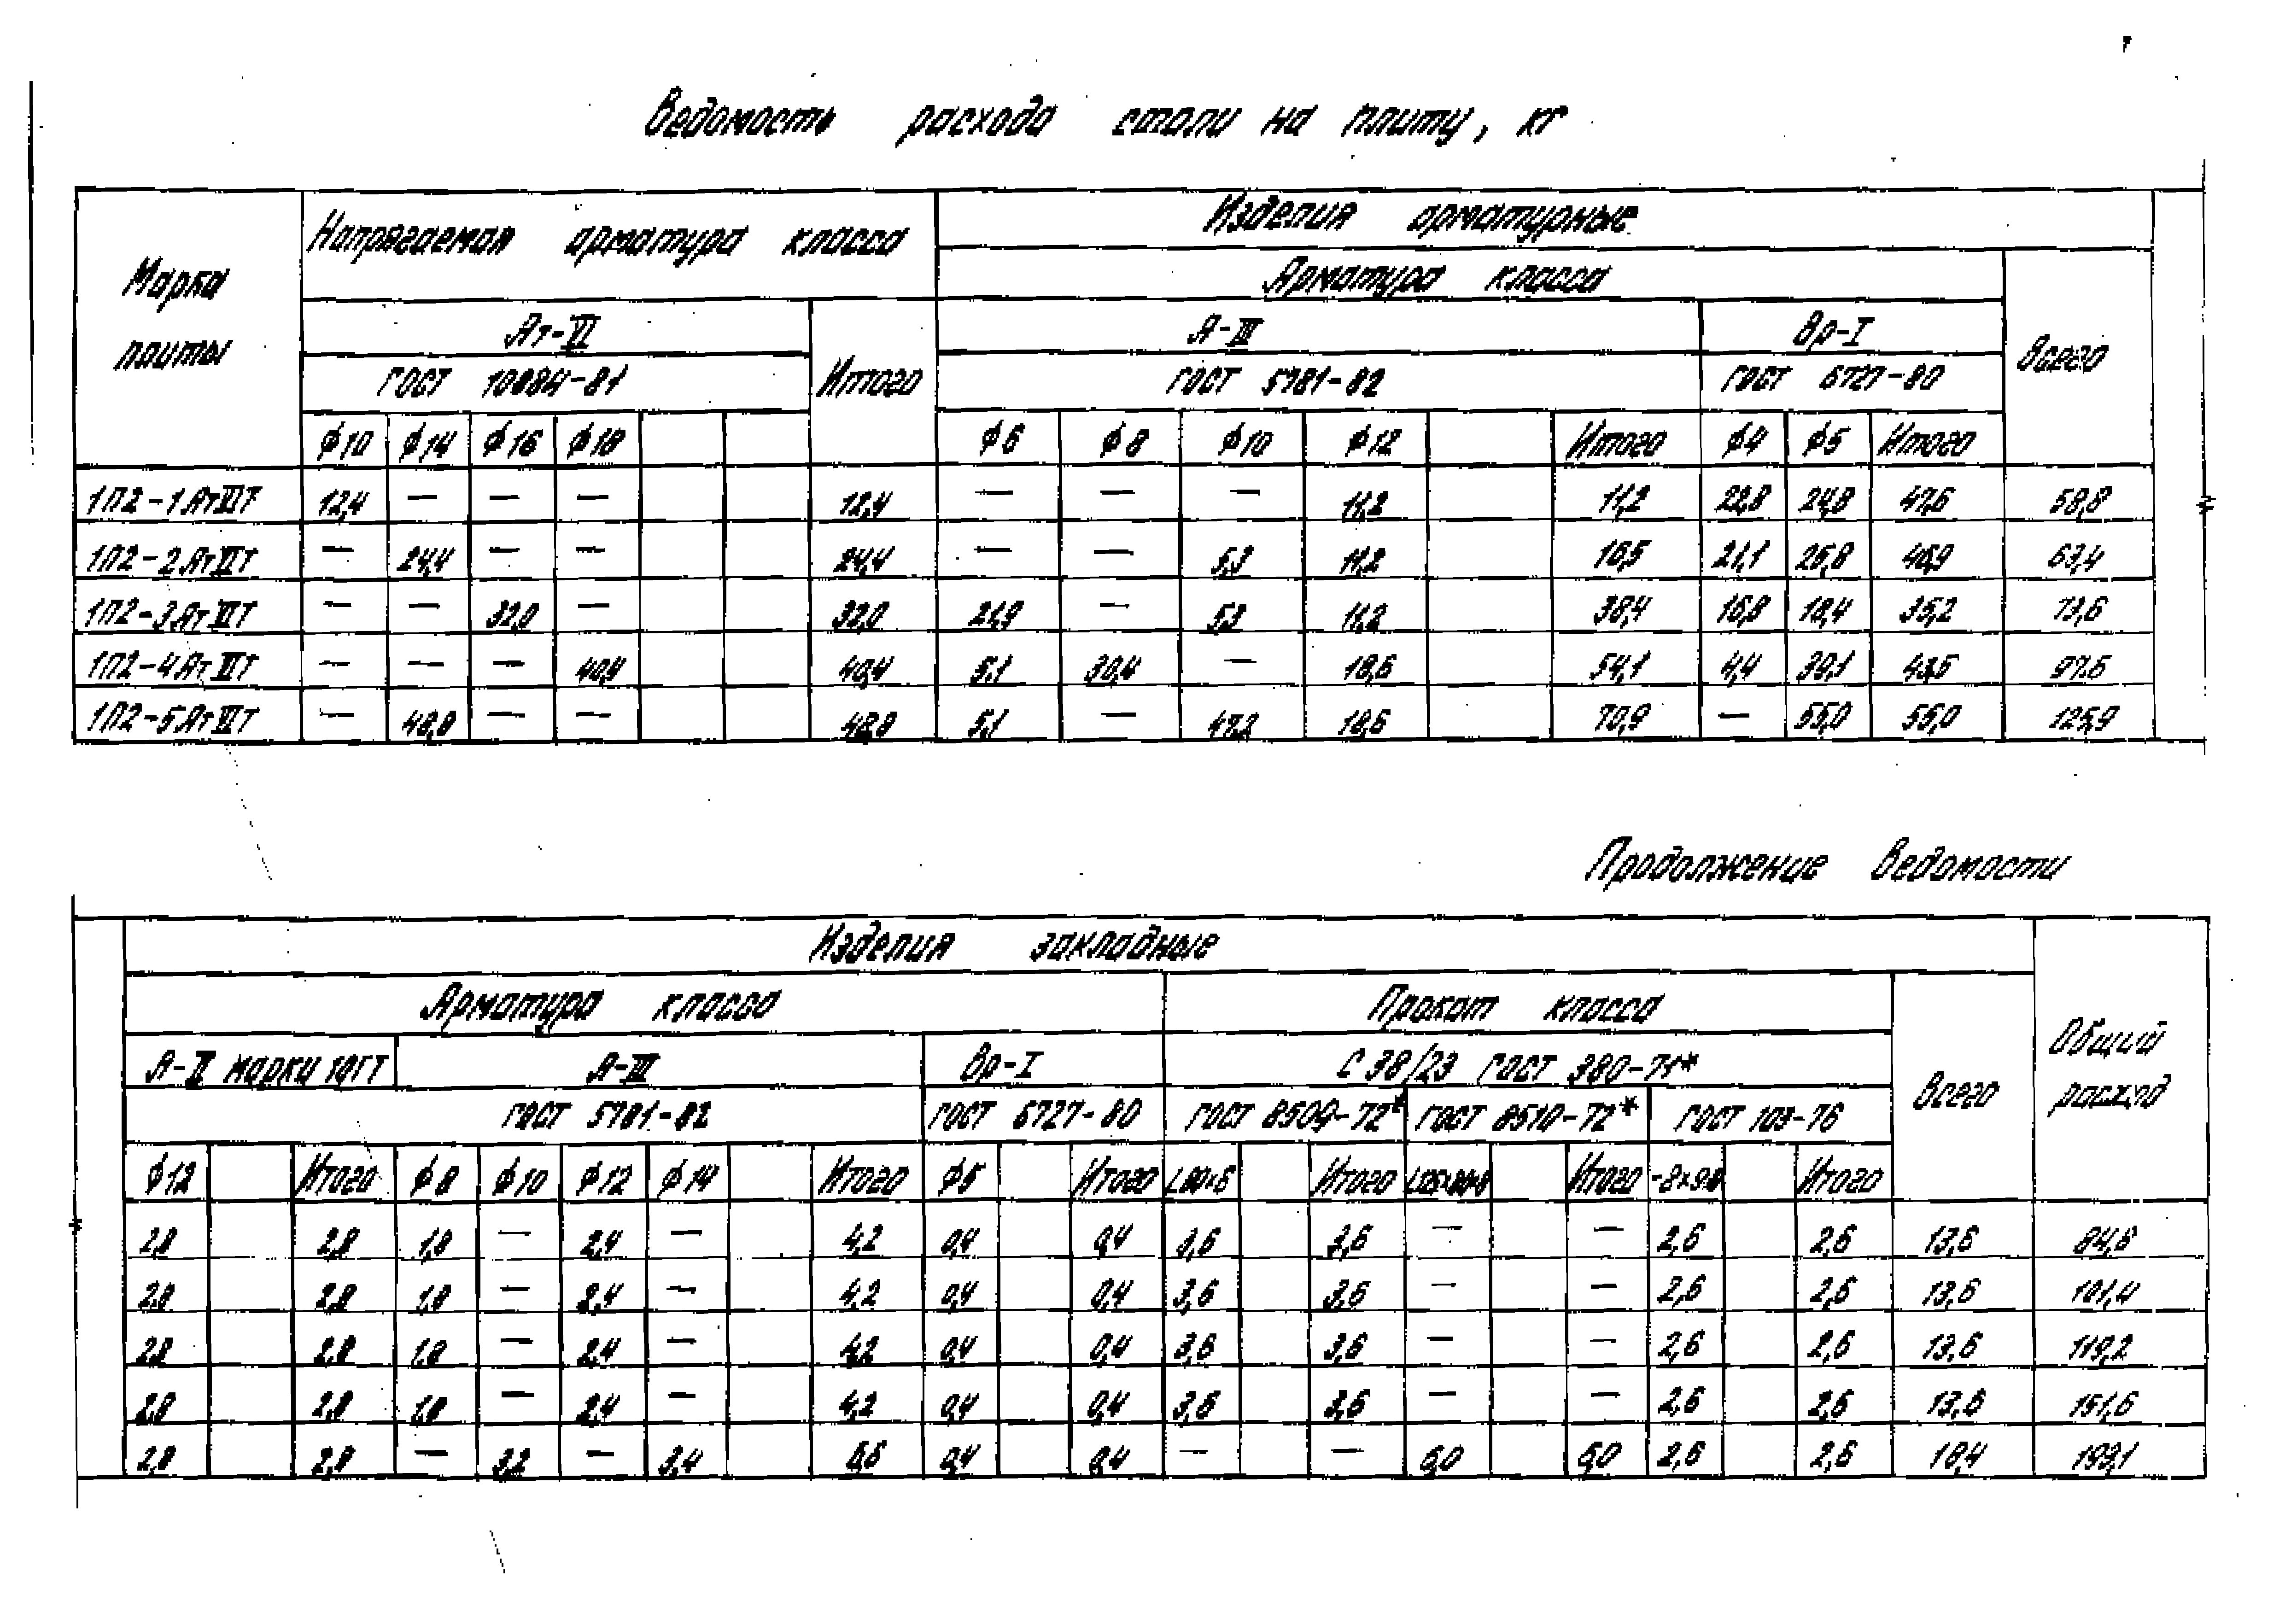 Ведомость расхода стали на плиту, кг
Марка плиты
Напрягаемая арматура класса
Изделия арматурные
Арматура класса
Ат-VI
Итого
А-III
Вр-I
Всего
ГОСТ 10884-81
ГОСТ 5781-82
ГОСТ 6727-80
ϕ10 ϕ14 ϕ16 ϕ18 ϕ6 ϕ8 ϕ10 ϕ12 Итого ϕ4 ϕ5 Итого
1П2-1АтVIТ 12,4 — — — 12,4 — — — 11,2 11,2 22,8 24,8 47,6 58,8
1П2-2АтVIТ — 24,4 — — 24,4 — — 5,3 11,2 16,5 21,1 25,8 46,9 63,4
1П2-3АтVIТ — — 32,0 — 32,0 21,9 — 5,3 11,2 38,4 16,8 18,4 35,2 73,6
1П2-4АтVIТ — — — 40,4 40,4 5,1 30,4 — 18,6 54,1 4,4 39,1 43,5 97,6
1П2-5АтVIТ — 48,8 — — 48,8 5,1 — 47,2 18,6 70,9 — 55,0 55,0 125,9
Продолжение ведомости
Изделия закладные
Общий расход
Арматура класса
Прокат класса
Всего
А-II марки 10ГТ
А-III
Вр-I
С 38/23 ГОСТ 380-71*
ГОСТ 5781-82
ГОСТ 6727-80
ГОСТ 8509-72*
ГОСТ 8510-72*
ГОСТ 103-76
ϕ12 Итого ϕ8 ϕ10 ϕ12 ϕ14 Итого ϕ5 Итого L80×6 Итого L125×80×8 Итого Итого
2,8 2,8 1,8 — 2,4 — 4,2 0,4 0,4 3,6 3,6 — — 2,6 2,6 13,6 84,8
2,8 2,8 1,8 — 2,4 — 4,2 0,4 0,4 3,6 3,6 — — 2,6 2,6 13,6 101,4
2,8 2,8 1,8 — 2,4 — 4,2 0,4 0,4 3,6 3,6 — — 2,6 2,6 13,6 119,2
2,8 2,8 1,8 — 2,4 — 4,2 0,4 0,4 3,6 3,6 — — 2,6 2,6 13,6 151,6
2,8 2,8 — 3,2 — 3,4 6,6 0,4 0,4 — — 6,0 6,0 2,6 2,6 18,4 193,1